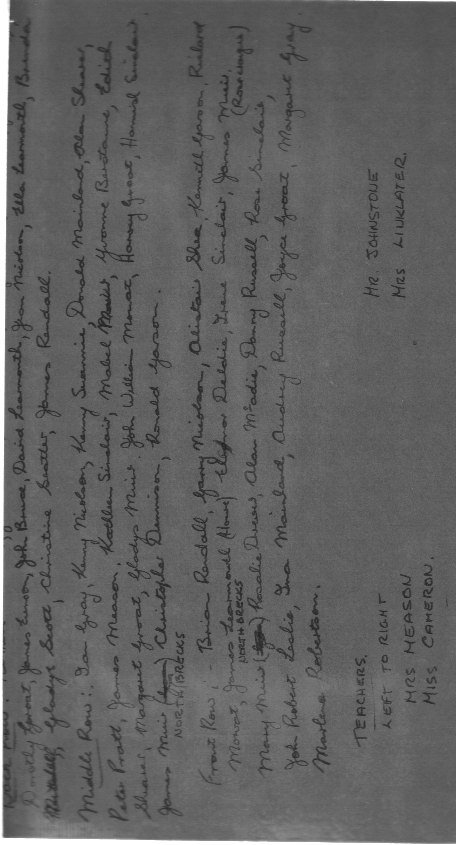 Back Row:
Dorothy Groat, James Linson, John Bruce, David Learmonth, Jean Nicolson, Ella Learmonth, Brenda
Gladys Scott, Christine Scatter, James Rendall.
Middle Row:. Ian Gray, Kenny Nicolson, Kenny Swannie, Donald Mainland, Alan Shearer,
Peter Pratt, James Meason, Kathleen Sinclair, Mabel Yvonne Bertanie, Edith
Shearer, Margaret Groat, Gladys Muir, John William Mowat, Harvey Groat, Hamish Sinclair.
James Muir Christopher Dennison, Ronald Garson.
NORTH BRECKS
Front Row: - Brian Rendall, Garry Nicolson, Alistair Shea, Kenneth Garson, Richard
Mowat, James Learmonth (Howe) Eleanor Deldie, Irene Sinclair, James Muir,
NORTH BRECKS
Mary Muir Rosalie Drever, Alan Mcadie, Danny Russell, Rose Sinclair,
John Robert Leslie, Ina Mainland, Audrey Russell, Joyce Groat, Margaret Gray.
Marlene Robertson.
TEACHERS.
LEFT TO RIGHT
MRS MEASON
MISS CAMERON.
MR JOHNSTONE
MRS LINKLATER.